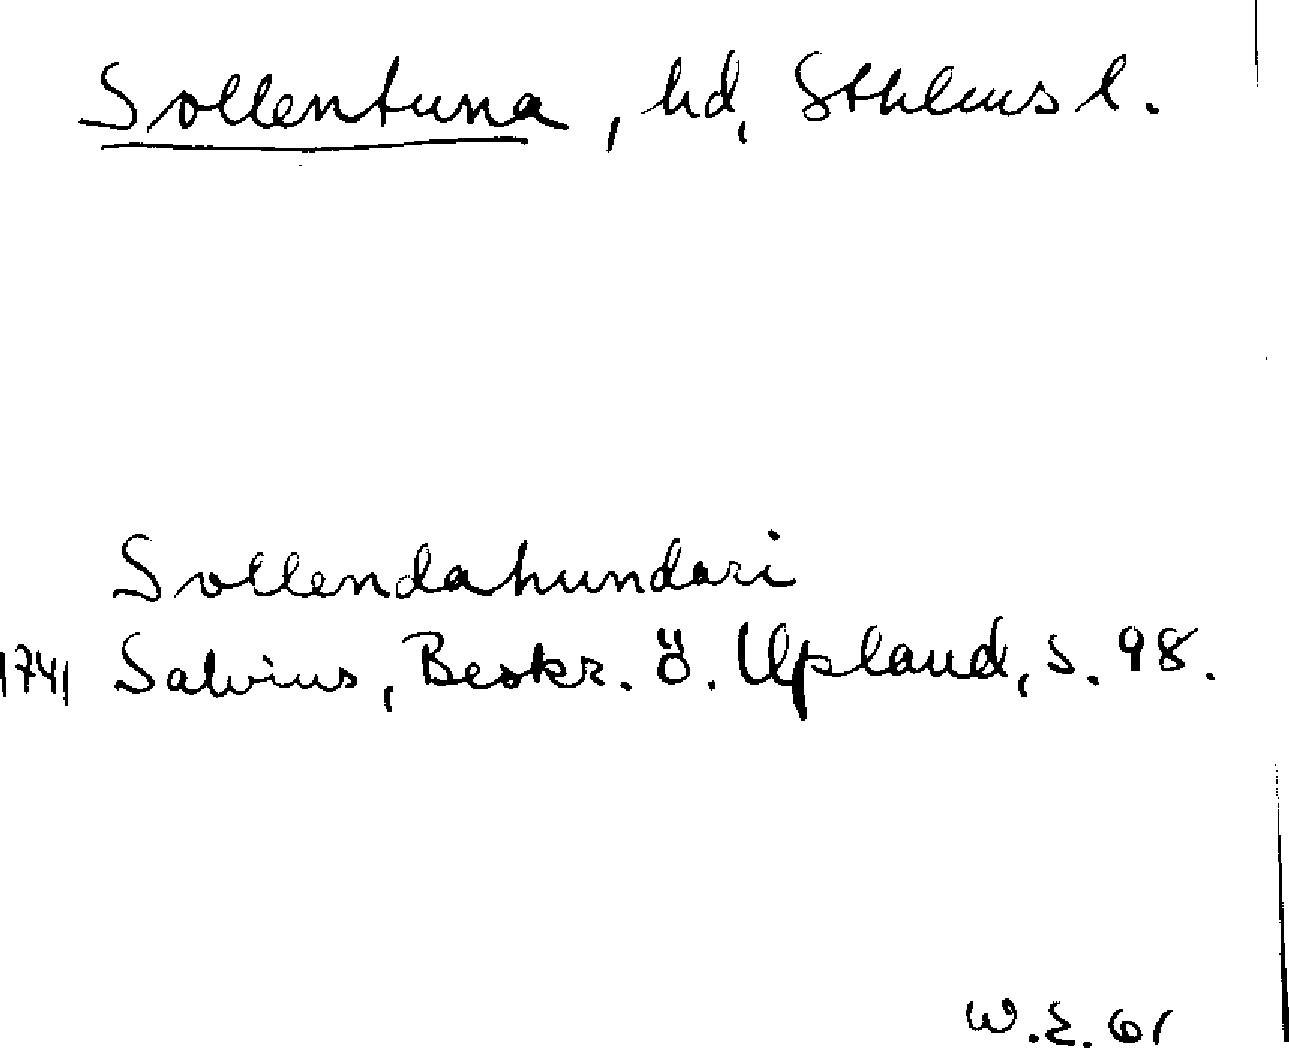 Sollentuna, hd, Sthlms l.
Sollendahundari
1741 Salvius, Beskr. ö. Upland, s. 98.
W.E. 61